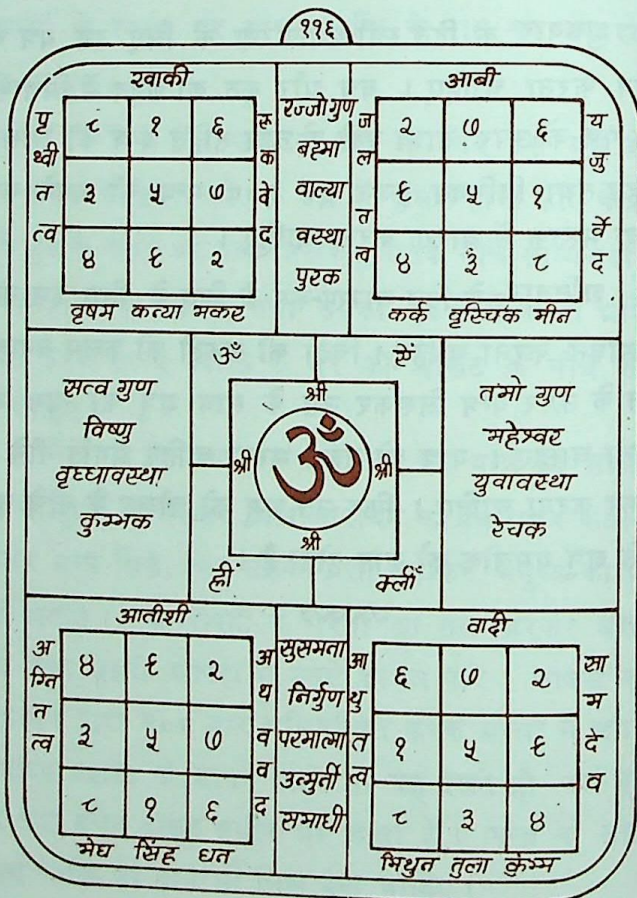 ११६
खाकी
पृथ्वी तत्व
८ १ ६
३ ५ ७
४ ९ २
रूकवेद
वृषभ कन्या मकर
रज्जोगुण
बह्मा
वाल्या
वस्था
पुरक
आबी
जलतत्व
२ ७ ६
९ ५ १
४ ३ ८
यजुर्वेद
कर्क वृस्चिक मीन
सत्व गुण
विष्णु
वृघ्घावस्था
कुम्भक
ॐ
ऐं
श्री
श्री
ॐ
श्री
श्री
ह्रीं
क्लीं
तमो गुण
महेश्वर
युवावस्था
रेचक
आतीशी
अग्नि तत्व
४ ९ २
३ ५ ७
८ १ ६
अथववद
मेघ सिंह धन
सुसमता
निर्गुण
परमात्मा
उन्मुर्ती
समाधी
वादी
आयुतत्व
६ ७ २
१ ५ ९
८ ३ ४
सामदेव
मिथुन तुला कुंम्भ